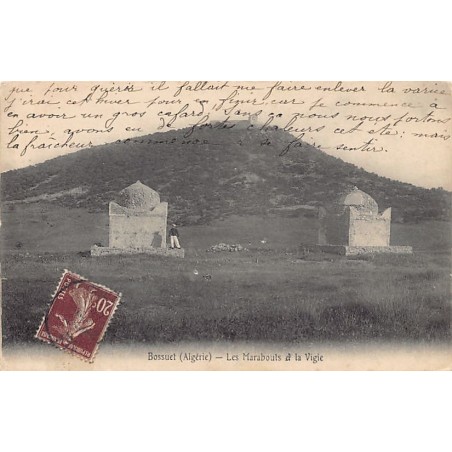 que pour guérir il fallait me faire enlever la varice
j'irai cet hiver pour en finir car je commence à
en avoir un gros cafard sans ça nous nous portons
bien, avons eu de fortes chaleurs cet été; mais
la fraicheur commence à se faire sentir.
20c
POSTES
BOSSUET (ALGÉRIE) — LES MARABOUTS & LA VIGIE